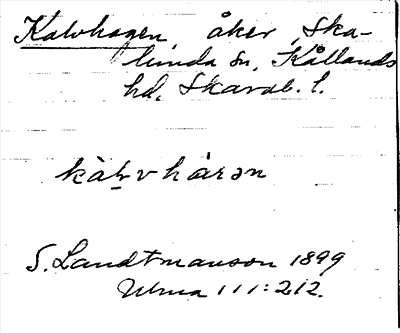 Kalvhagen, åker, Ska-
lunda sn, Kållands
hd, Skarab. l.
kàl̥vhàrən
S. Landtmanson 1899
Ulma 111:212.